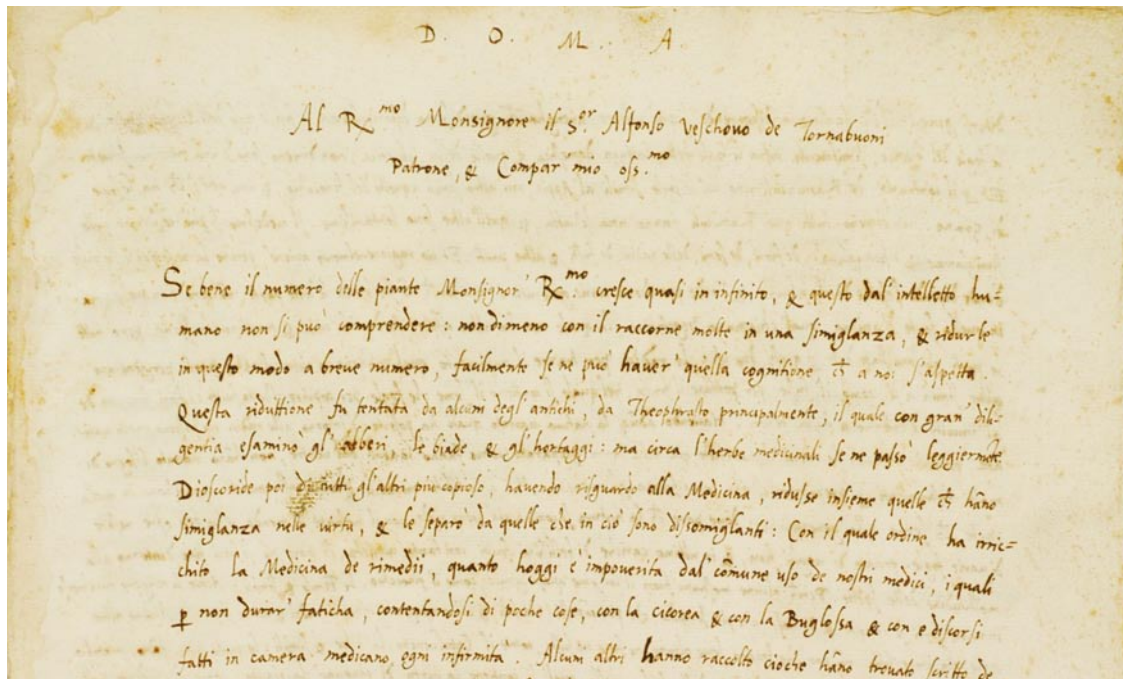 D. O. M. A.
Al R.mo Monsignore il S.or Alfonso Veschovo de Tornabuoni
Patrone, & Compar mio oss.mo
Se bene il numero delle piante Monsignor R.mo cresce quasi in infinito, & questo dal' intelletto hu=
mano non si può comprendere: non dimeno con il raccorne molte in una simiglanza, & ridurle
in questo modo a breve numero, facilmente se ne può haver' quella cognitione ch̄ a noi s'aspetta.
Questa riduttione fu tentata da alcuni degl'antichi, da Theophrasto principalmente, il quale con gran' dili=
gentia esaminò gl' albberi, le biade, & gl'hortaggi: ma circa l'herbe medicinali se ne passò leggiermēte.
Dioscoride poi di tutti gl'altri piu copioso, havendo risguardo alla Medicina, ridusse insieme quelle ch̄ hāno
simiglanza nelle virtu, & le separò da quelle che in ciò sono dissomiglanti: Con il quale ordine ha irric=
chito la Medicina de rimedii, quanto hoggi è impoverita dal' cōmune uso de nostri medici, i quali
ꝑ non durar' faticha, contentandosi di poche cose, con la cicorea & con la Buglossa & con e discorsi
fatti in camera medicano ogni infirmità. Alcuni altri hanno raccolto cioche hāno trovato scritto de